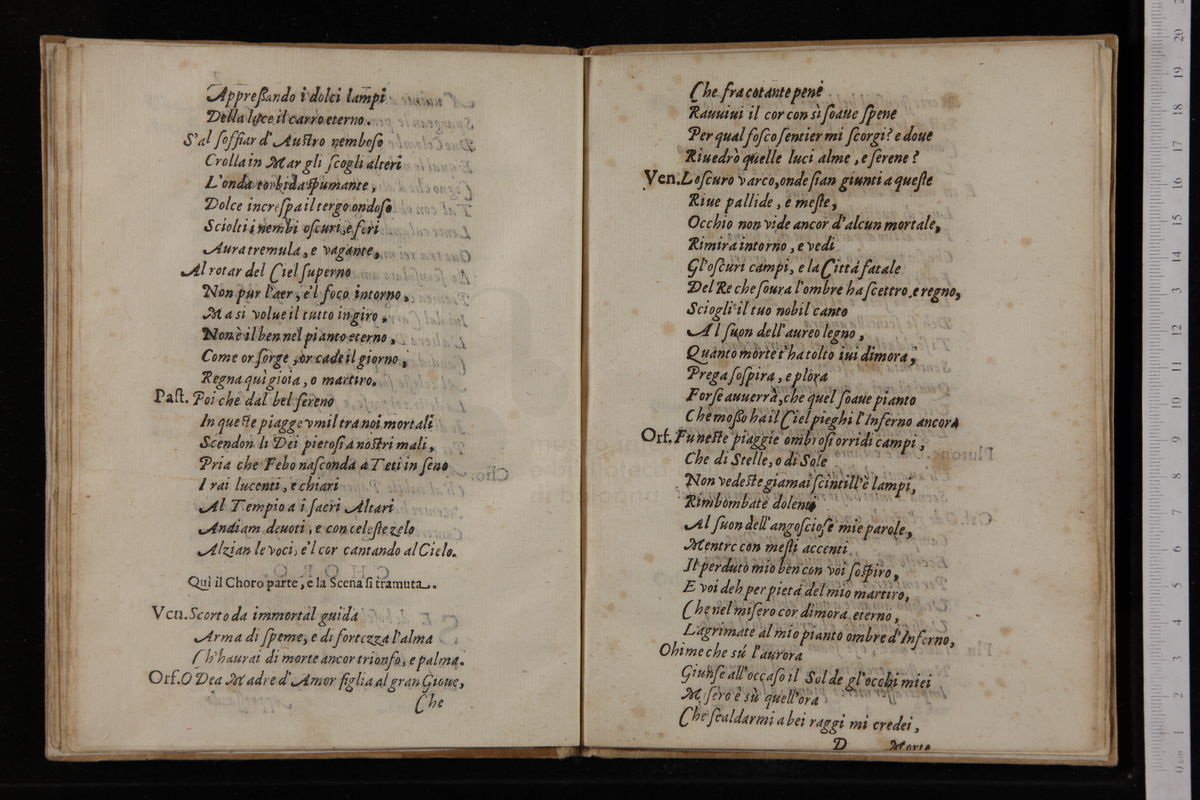 Appreßando i dolci lampi
Della luce il carro eterno.
S'al soffiar d'Austro nemboso
Crolla in Mar gli scogli alteri
L'onda torbida spumante,
Dolce increspa il tergo ondoso
Sciolti i nembi oscuri, e feri
Aura tremula, e vagante,
Al rotar del Ciel superno
Non pur l'aer, e'l foco intorno,
Ma si volue il tutto in giro,
Non è il ben nel pianto eterno,
Come or sorge, or cade il giorno,
Regna qui gioia, o martiro.
Past. Poi che dal bel sereno
In queste piagge vmil tra noi mortali
Scendon li Dei pietosi a nostri mali,
Pria che Febo nasconda a Teti in seno
I rai lucenti, e chiari
Al Tempio a i sacri Altari
Andiam deuoti, e con celeste zelo
Alzian le voci, e'l cor cantando al Cielo.
Quì il Choro parte, e la Scena si tramuta.
Ven. Scorto da immortal guida
Arma di speme, e di fortezza l'alma
Ch'haurai di morte ancor trionfo, e palma.
Orf. O Dea Madre d'Amor figlia al gran Gioue,
Che
Che fra cotante pene
Rauuiui il cor con sì soaue spene
Per qual fosco sentier mi scorgi? e doue
Riuedrò quelle luci alme, e serene?
Ven. L'oscuro varco, onde sian giunti a queste
Riue pallide, e meste,
Occhio non vide ancor d'alcun mortale,
Rimira intorno, e vedi
Gl'oscuri campi, e la Città fatale
Del Re che soura l'ombre ha scettro e regno,
Sciogli il tuo nobil canto
Al suon dell'aureo legno,
Quanto morte t'ha tolto iui dimora,
Prega sospira, e plora
Forse auuerrà, che quel soaue pianto
Che mosso ha il Ciel pieghi l'Inferno ancora
Orf. Funeste piaggie ombrosi orridi campi,
Che di Stelle, o di Sole
Non vedeste giamai scintill'è lampi,
Rimbombate dolenti
Al suon dell'angosciose mie parole,
Mentre con mesti accenti
Il perduto mio ben con voi sospiro,
E voi deh per pietà del mio martiro,
Che nel misero cor dimora eterno,
Lagrimate al mio pianto ombre d'Inferno,
Ohime che sù l'aurora
Giunse all'occaso il Sol de gl'occhi miei
Misero è sù quell'ora
Che scaldarmi a bei raggi mi credei,
D Morte